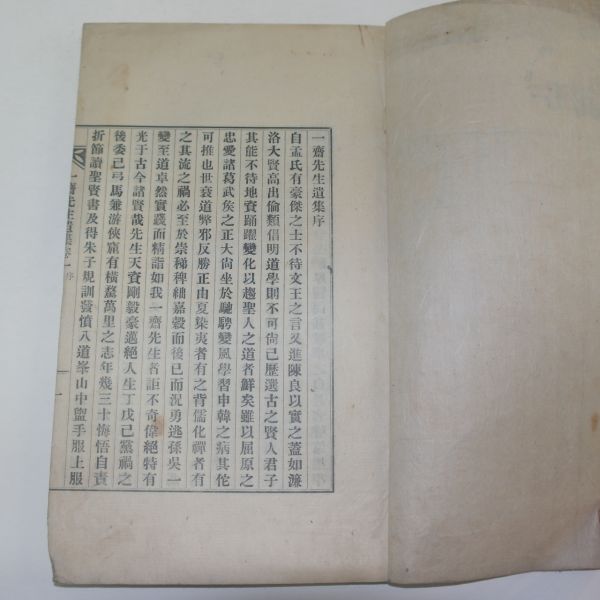 一齋先生遺集序
自孟氏有豪傑之士不待文王之言又進陳良以實之蓋如濂
洛大賢高出倫類倡明道學則不可尙已歷選古之賢人君子
其能不待地資踊躍變化以趨聖人之道者鮮矣雖以屈原之
忠愛諸葛武矦之正大尙坐於馳騁變風學習申韓之病其佗
可推也世衰道弊邪反勝正由夏染夷者有之背儒化禪者有
之其流之禍必至於崇稊稗絀嘉糓而後已而況勇逃孫吳一
變至道卓然實踐而精詣如我一齋先生者詎不奇偉絕特有
光于古今諸賢哉先生天資剛毅豪邁絕人生丁戊己黨禍之
後委己弓馬兼游俠窟有橫騖萬里之志年幾三十悔悟自責
折節讀聖賢書及得朱子規訓發憤入道峯山中盥手服上服
一齋先生遺集卷一 序 一